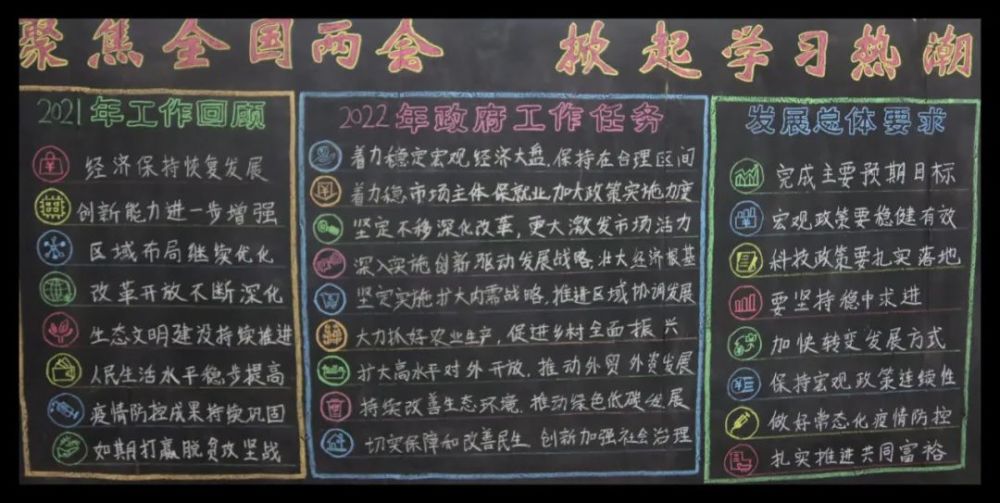 聚焦全国两会 掀起学习热潮
2021年工作回顾
经济保持恢复发展
创新能力进一步增强
区域布局继续优化
改革开放不断深化
生态文明建设持续推进
人民生活水平稳步提高
疫情防控成果持续巩固
如期打赢脱贫攻坚战
2022年政府工作任务
着力稳定宏观经济大盘,保持在合理区间
着力稳市场主体保就业 加大政策实施力度
坚定不移深化改革,更大激发市场活力
深入实施创新驱动发展战略,壮大经济根基
坚定实施扩大内需战略,推进区域协调发展
大力抓好农业生产,促进乡村全面振兴
扩大高水平对外开放,推动外贸 外资发展
持续改善生态环境,推动绿色低碳发展
切实保障和改善民生 创新加强社会治理
发展总体要求
完成主要预期目标
宏观政策要稳健有效
科技政策要扎实落地
要坚持稳中求进
加快转变发展方式
保持宏观政策连续性
做好常态化疫情防控
扎实推进共同富裕